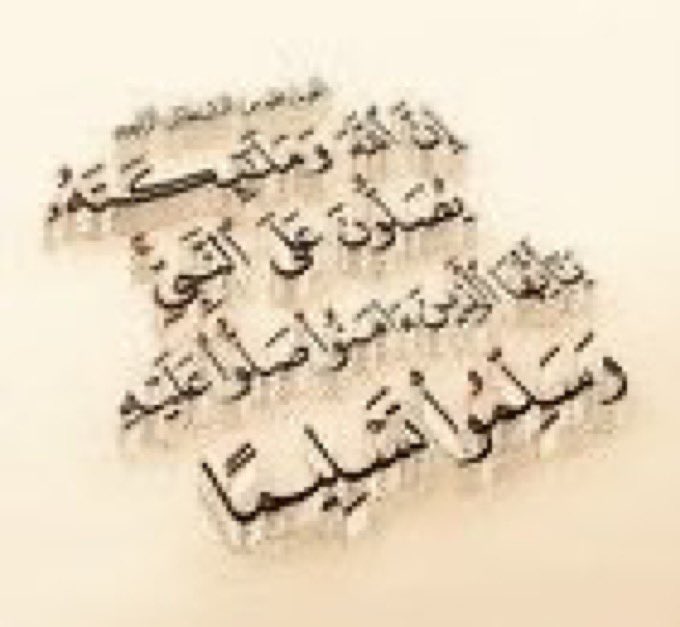 إِنَّ اللَّهَ وَمَلَٰٓئِكَتَهُۥ
يُصَلُّونَ عَلَى ٱلنَّبِيِّ
يَٰٓأَيُّهَا ٱلَّذِينَ ءَامَنُوا۟ صَلُّوا۟ عَلَيْهِ
وَسَلِّمُوا۟ تَسْلِيمًا